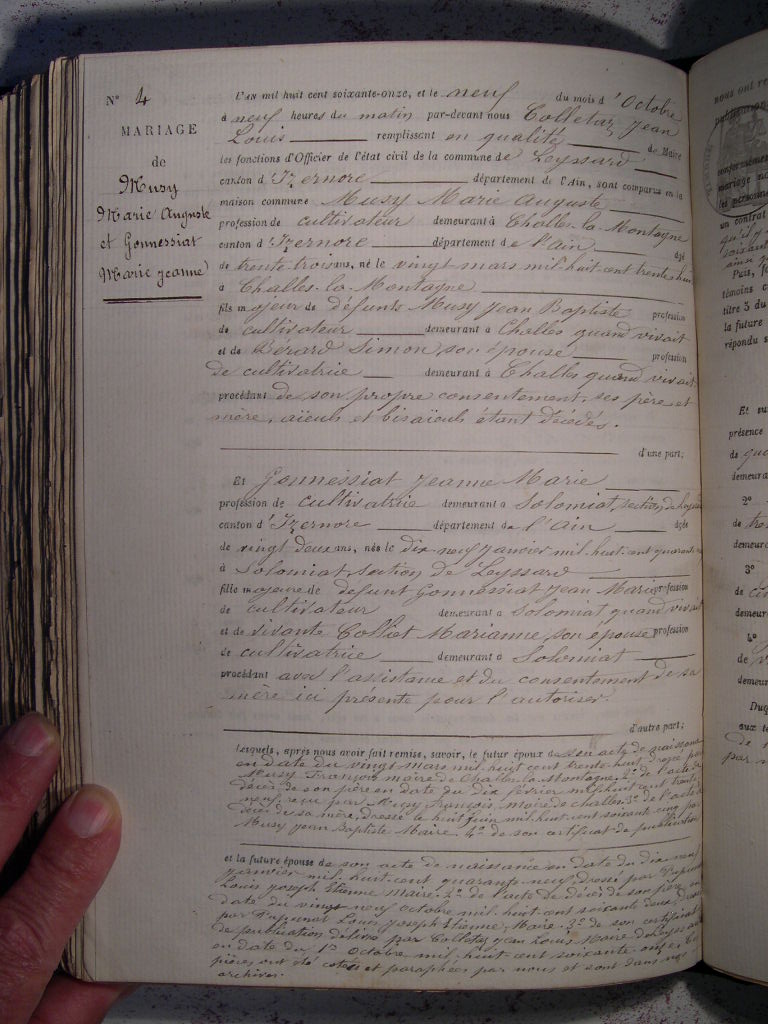 N° 4
MARIAGE
de
Musy
Marie Auguste
et Gonnessiat
Marie Jeanne
L'AN mil huit cent soixante-onze, et le neuf du mois d'Octobre
à neuf heures du matin par-devant nous Colletaz Jean
Louis remplissant en qualité de Maire
les fonctions d'Officier de l'état civil de la commune de Leyssard
canton d'Izernore département de l'Ain, sont comparus en la
maison commune Musy Marie Auguste
profession de cultivateur demeurant à Challes-la-Montagne
canton d'Izernore département de l'Ain âgé
de trente trois ans, né le vingt mars mil-huit-cent trente huit
à Challes-la-Montagne
fils majeur de défunts Musy Jean Baptiste profession
de cultivateur demeurant à Challes quand vivait
et de Bérard Simon, son épouse profession
de cultivatrice demeurant à Challes quand vivait
procédant de son propre consentement, ses père et
mère, aïeuls et bisaïeuls étant décédés.
d'une part;
Et Gonnessiat Jeanne Marie
profession de cultivatrice demeurant à Solomiat, section de
canton d'Izernore département de l'Ain âgée
de vingt deux ans, née le dix neuf janvier mil-huit-cent quarante
à Solomiat, section de Leyssard
fille majeure de défunt Gonnessiat Jean Marie profession
de cultivateur demeurant à Solomiat quand vivait
et de vivante Colliet Marianne, son épouse profession
de cultivatrice demeurant à Solomiat
procédant avec l'assistance et du consentement de sa
mère ici présente pour l'autoriser.
d'autre part;
Lesquels, après nous avoir fait remise, savoir, le futur époux de son acte de naissance
en date du vingt mars mil-huit cent trente-huit dressé par
Musy François maire de Challes-la-Montagne. 2° de l'acte de
décès de son père en date du dix février mil-huit cent trente
neuf, reçu par Musy François, Maire de Challes. 3° de l'acte de
décès de sa mère, dressé le huit juin mil-huit-cent soixante cinq par
Musy Jean Baptiste Maire. 4° de son certificat de publication
et la future épouse de son acte de naissance en date du dix neuf
janvier mil-huit-cent quarante-neuf, dressé par
Louis Joseph Etienne Maire. 2° de l'acte de décès de son père en
date du vingt neuf octobre mil-huit-cent soixante deux, dressé
par Louis Joseph Etienne, Maire. 3° de son certificat
de publication délivré par Colletaz Jean Louis Maire de Leyssard
en date du 1er Octobre mil-huit-cent soixante-onze
pièces ont été cotées et paraphées par nous et sont dans nos
archives.